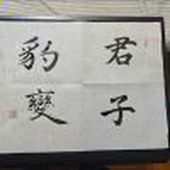 君子
豹變